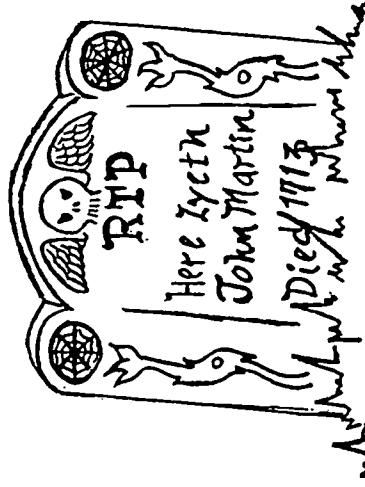 RIP
Here Lyeth
John Martin
Died 1713